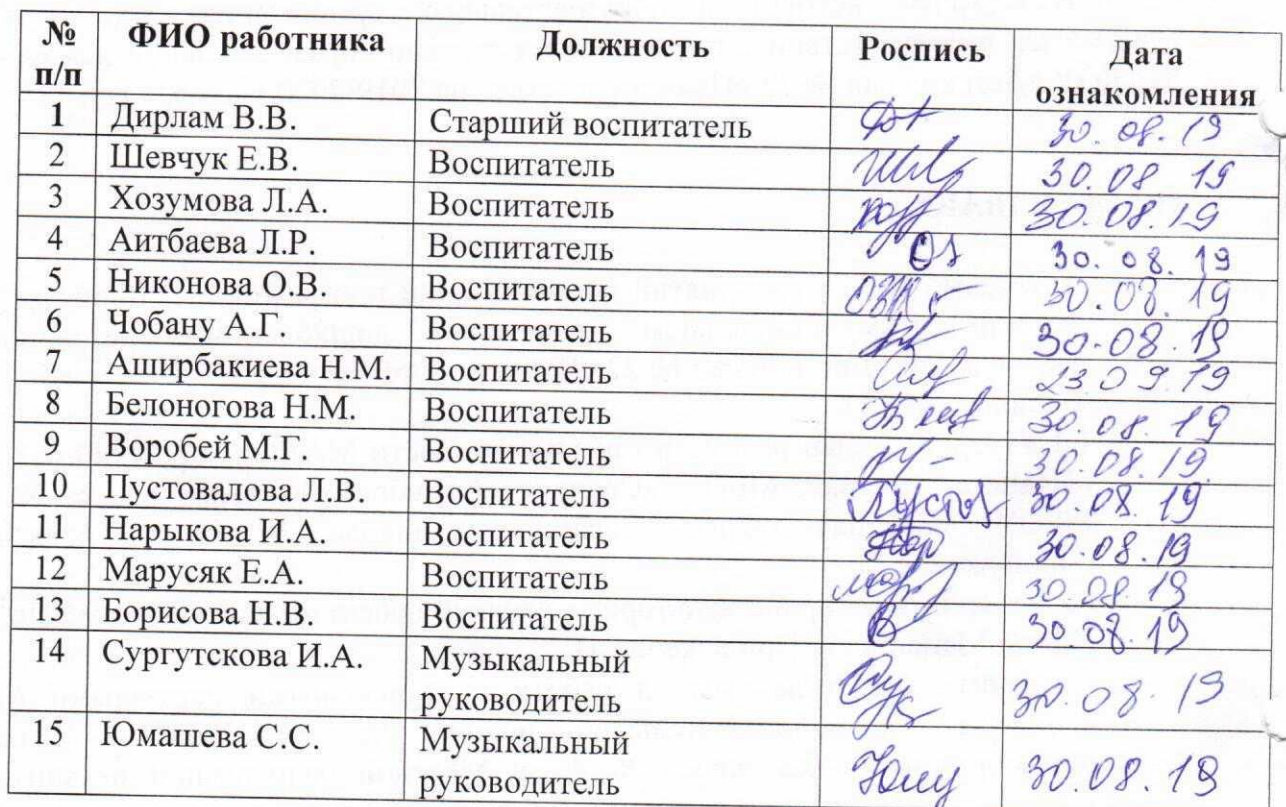 № п/п ФИО работника Должность Роспись Дата ознакомления
1 Дирлам В.В. Старший воспитатель 30.08.19
2 Шевчук Е.В. Воспитатель 30.08 19
3 Хозумова Л.А. Воспитатель 30.08.19
4 Аитбаева Л.Р. Воспитатель 30.08.19
5 Никонова О.В. Воспитатель 30.08.19
6 Чобану А.Г. Воспитатель 30.08.19
7 Аширбакиева Н.М. Воспитатель 23.09.19
8 Белоногова Н.М. Воспитатель 30.08.19
9 Воробей М.Г. Воспитатель 30.08.19
10 Пустовалова Л.В. Воспитатель 30.08.19
11 Нарыкова И.А. Воспитатель 30.08.19
12 Марусяк Е.А. Воспитатель 30.08.19
13 Борисова Н.В. Воспитатель 30 08.19
14 Сургутскова И.А. Музыкальный
руководитель 30.08.19
15 Юмашева С.С. Музыкальный
руководитель 30.08.19